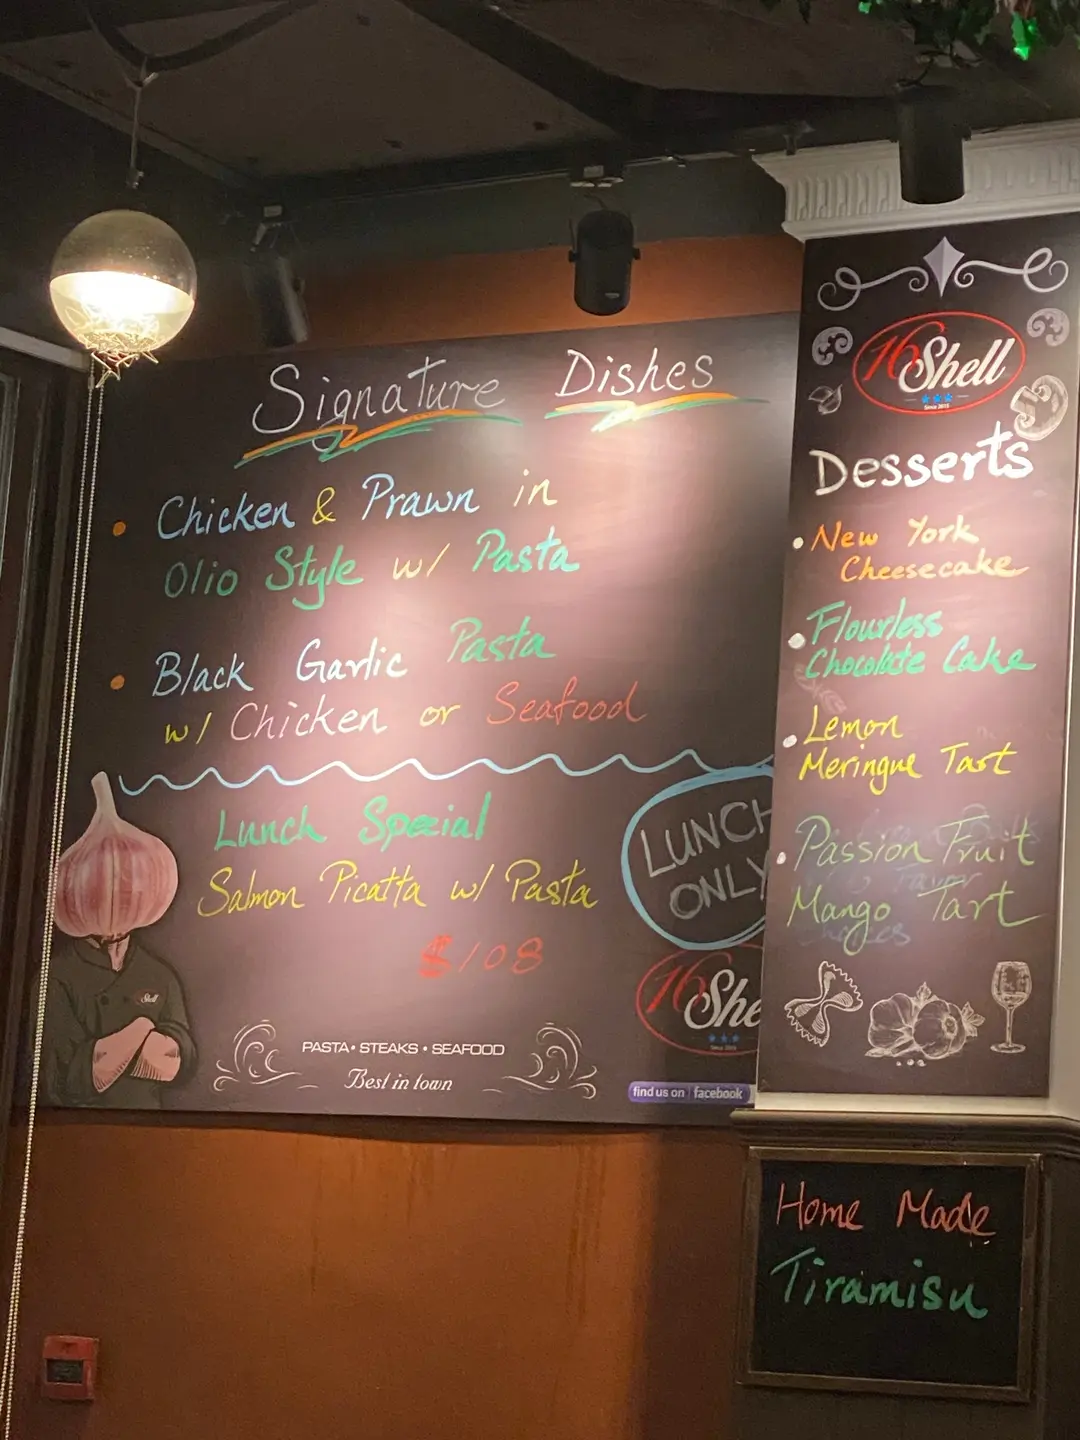 Signature Dishes
• Chicken & Prawn in
Olio Style w/ Pasta
• Black Garlic Pasta
w/ Chicken or Seafood
Lunch Special
Salmon Picatta w/ Pasta
$108
LUNCH
ONLY
16 She
Since 2015
Shell
PASTA • STEAKS • SEAFOOD
Best in town
find us on facebook
16 Shell
Since 2015
Desserts
• New York
Cheesecake
• Flourless
Chocolate Cake
• Lemon
Meringue Tart
• Passion Fruit
Mango Tart
Home Made
Tiramisu